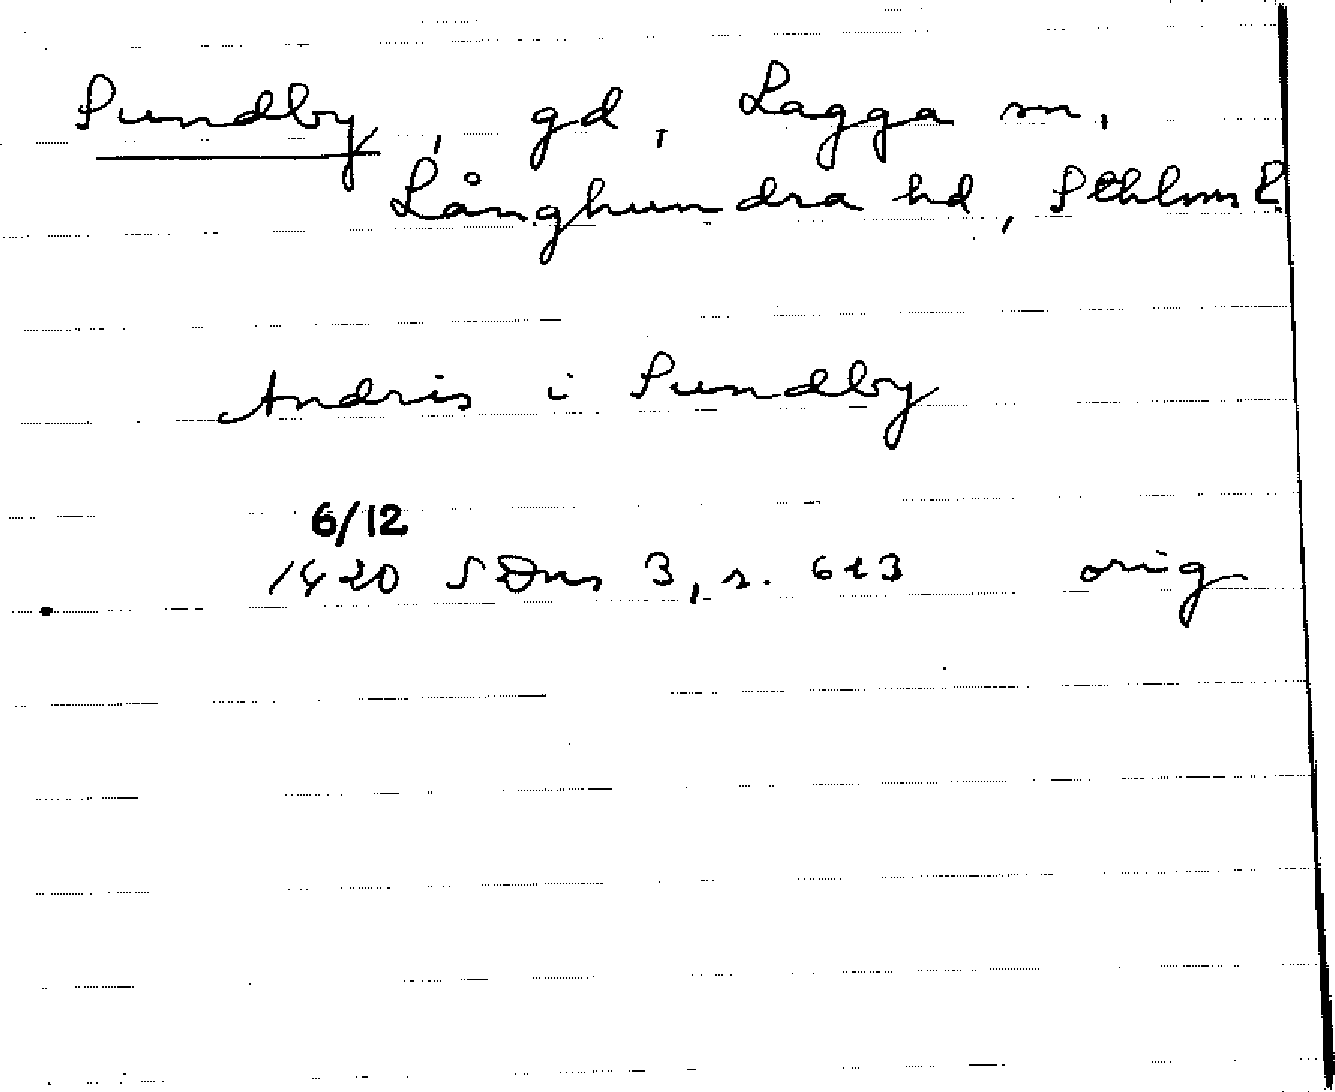 Sundby, gd, Lagga sn,
Långhundra hd, Sthlms l
Andris i Sundby
6/12
1420 SDns 3, s. 623 orig